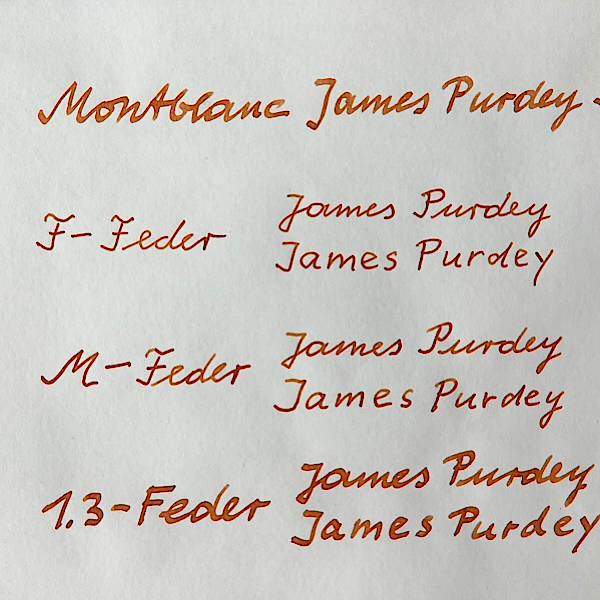 Montblanc James Purdey -
F-Feder James Purdey
James Purdey
M-Feder James Purdey
James Purdey
1.3-Feder James Purdey
James Purdey